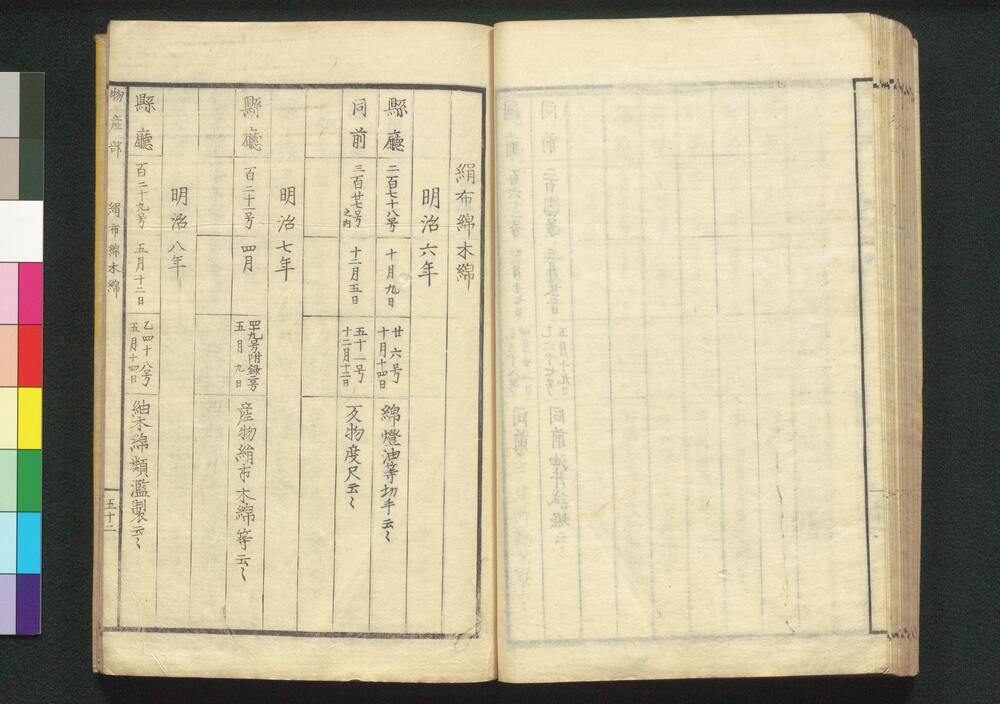 絹布綿木綿
明治六年
縣廳 二百七十八号 十月九日 廿六号 十月十四日 綿燈油等切手云〻
同前 三百廿七号之内 十二月五日 五十一号 十二月十二日 反物度尺云〻
明治七年
縣廳 百二十一号 四月 四十九号附録二号 五月九日 産物絹布木綿等云〻
明治八年
縣廳 百二十九号 五月十二日 乙四十八号 五月十四日 紬木綿類濫製云〻
物産部 絹布綿木綿 五十二